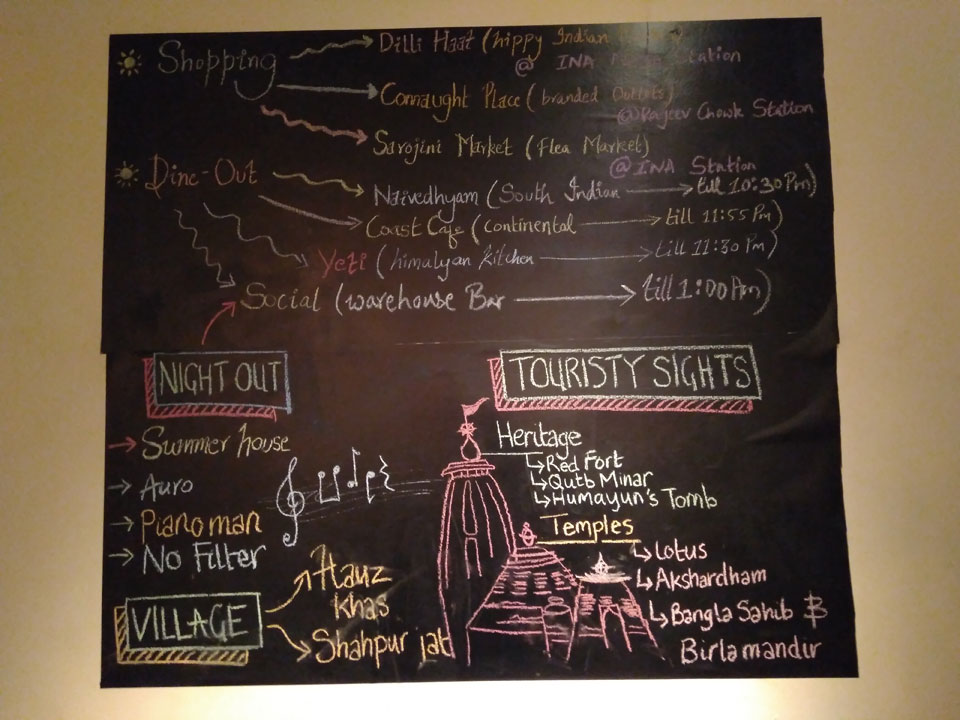 Shopping
Dilli Haat (hippy Indian
@ INA Station
Connaught Place (branded Outlets)
@Rajeev Chowk Station
Sarojini Market (Flea Market)
@INA Station
Dine-Out
Naivedhyam (South Indian till 10:30 Pm)
Coast Cafe (continental till 11:55 Pm)
Yeti (himalyan kitchen till 11:30 Pm)
Social (warehouse Bar till 1:00 Am)
NIGHT OUT
Summer house
Auro
Pianoman
No Filter
VILLAGE
Hauz
Khas
Shahpur jat
TOURISTY SIGHTS
Heritage
Red Fort
Qutb Minar
Humayun's Tomb
Temples
Lotus
Akshardham
Bangla Sahib
Birla mandir